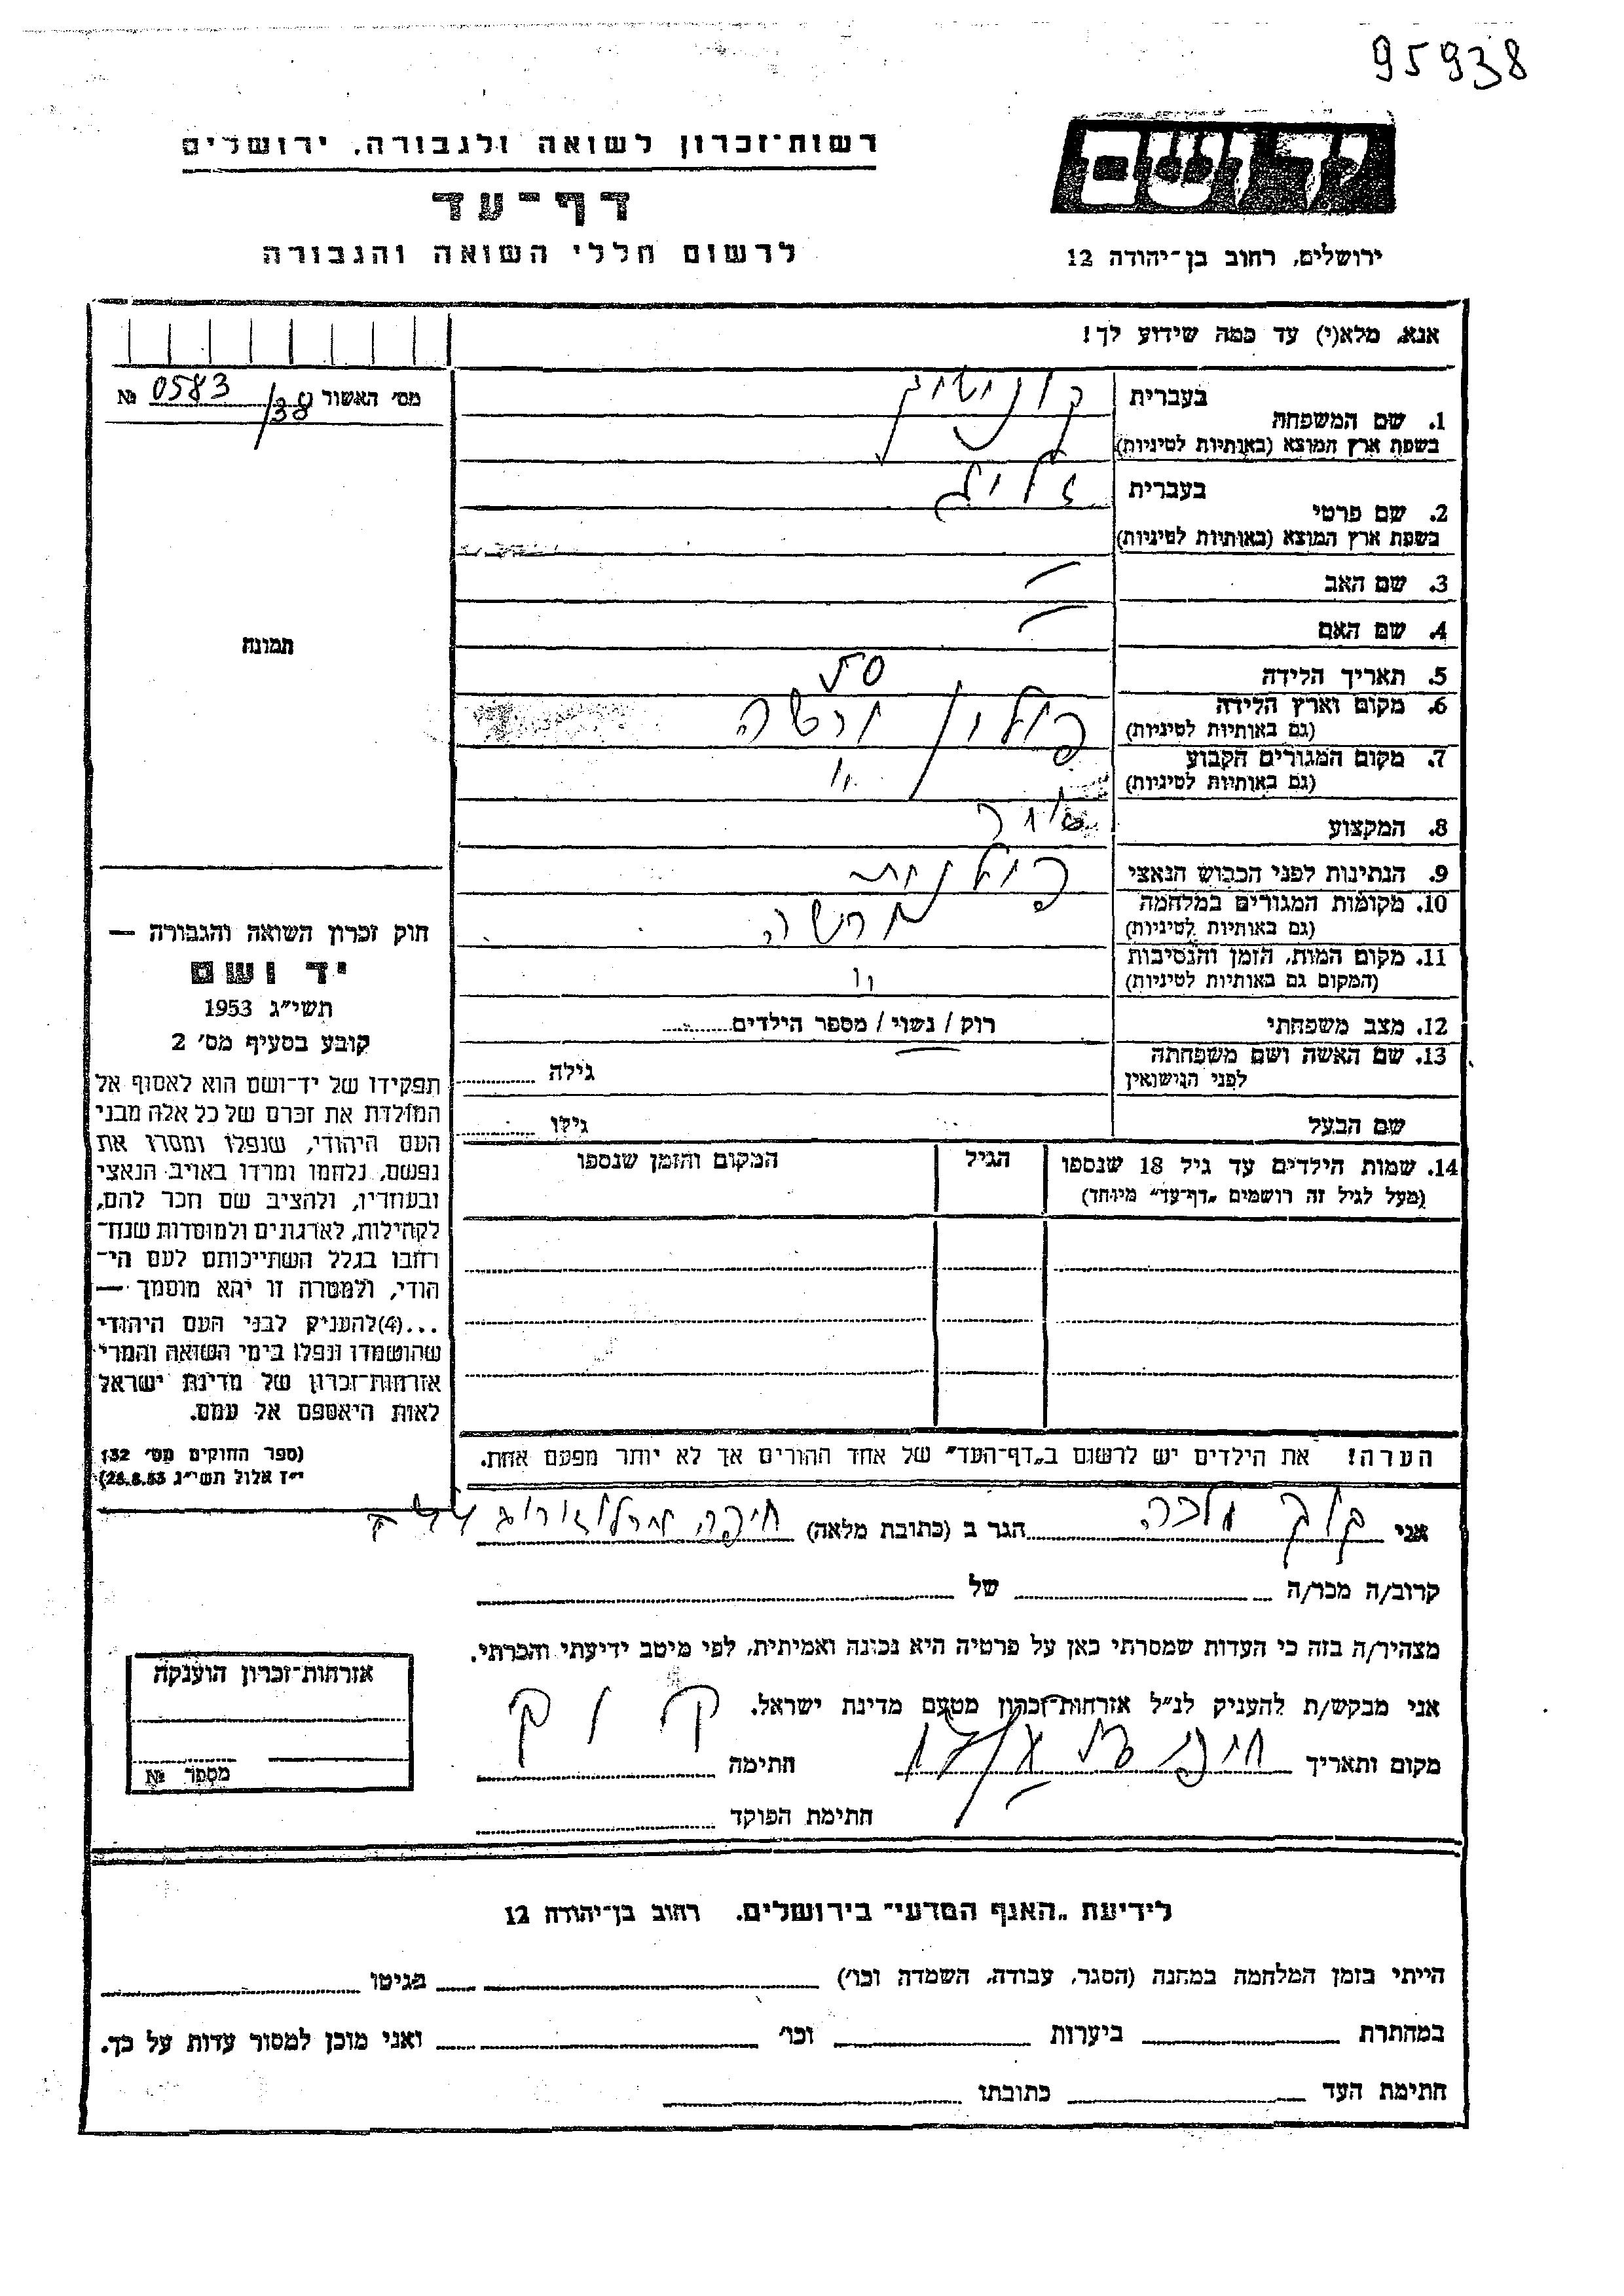 95938
יד ושם
רשות־זכרון לשואה ולגבורה, ירושלים
דף־עד
לרשום חללי השואה והגבורה
ירושלים, רחוב בן־יהודה 12
אנא, מלא(י) עד כמה שידוע לך!
מס׳ האשור
38/ 0583 №
תמונה
חוק זכרון השואה והגבורה —
יד ושם
תשי״ג 1953
קובע בסעיף מס׳ 2
תפקידו של יד־ושם הוא לאסוף אל
המולדת את זכרם של כל אלה מבני
העם היהודי, שנפלו ומסרו את
נפשם, נלחמו ומרדו באויב הנאצי
ובעוזריו, ולהציב שם וזכר להם,
לקהילות, לארגונים ולמוסדות שנח־
רחבו בגלל השתייכותם לעם הי־
הודי, ולמטרה זו יהא מוסמך —
...(4)להעניק לבני העם היהודי
שהושמדו ונפלו בימי השואה והמרי
אזרחות־זכרון של מדינת ישראל
לאות היאספם אל עמם.
(ספר החוקים מס׳ 132
י״ז אלול תשי״ג 28.8.53)
בעברית
1. שם המשפחה
בשפת ארץ המוצא (באותיות לטיניות)
בעברית זליג
2. שם פרטי
בשפת ארץ המוצא (באותיות לטיניות)
3. שם האב —
4. שם האם —
5. תאריך הלידה 50
6. מקום וארץ הלידה פולין ורשה
(גם באותיות לטיניות)
7. מקום המגורים הקבוע "
(גם באותיות לטיניות)
8. המקצוע
9. הנתינות לפני הכבוש הנאצי פולנית
10. מקומות המגורים במלחמה ורשה
(גם באותיות לטיניות)
11. מקום המות, הזמן והנסיבות "
(המקום גם באותיות לטיניות)
12. מצב משפחתי רוק / נשוי / מספר הילדים
13. שם האשה ושם משפחתה
לפני הנישואין גילה
שם הבעל גילו
14. שמות הילדים עד גיל 18 שנספו הגיל המקום והזמן שנספו
(מעל לגיל זה רושמים „דף־עד״ מיוחד)
הערה! את הילדים יש לרשום ב„דף־העד״ של אחד ההורים אך לא יותר מפעם אחת.
אני קוק מלכה הגר ב (כתובת מלאה) חיפה
קרוב/ה מכר/ה של
מצהיר/ה בזה כי העדות שמסרתי כאן על פרטיה היא נכונה ואמיתית, לפי מיטב ידיעתי והכרתי.
אני מבקש/ת להעניק לנ״ל אזרחות־זכרון מטעם מדינת ישראל.
מקום ותאריך חיפה חתימה קוק
חתימת הפוקד
אזרחות־זכרון הוענקה
מספר №
לידיעת „האגף המדעי״ בירושלים. רחוב בן־יהודה 12
הייתי בזמן המלחמה במחנה (הסגר, עבודה, השמדה וכו׳) בגיטו
במחתרת ביערות וכו׳ ואני מוכן למסור עדות על כך.
חתימת העד כתובתו